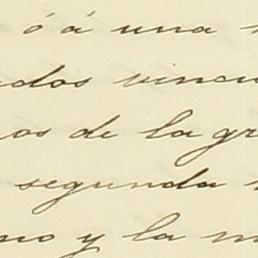 ó á una
dos vincu
os de la gr
segunda
no y la m